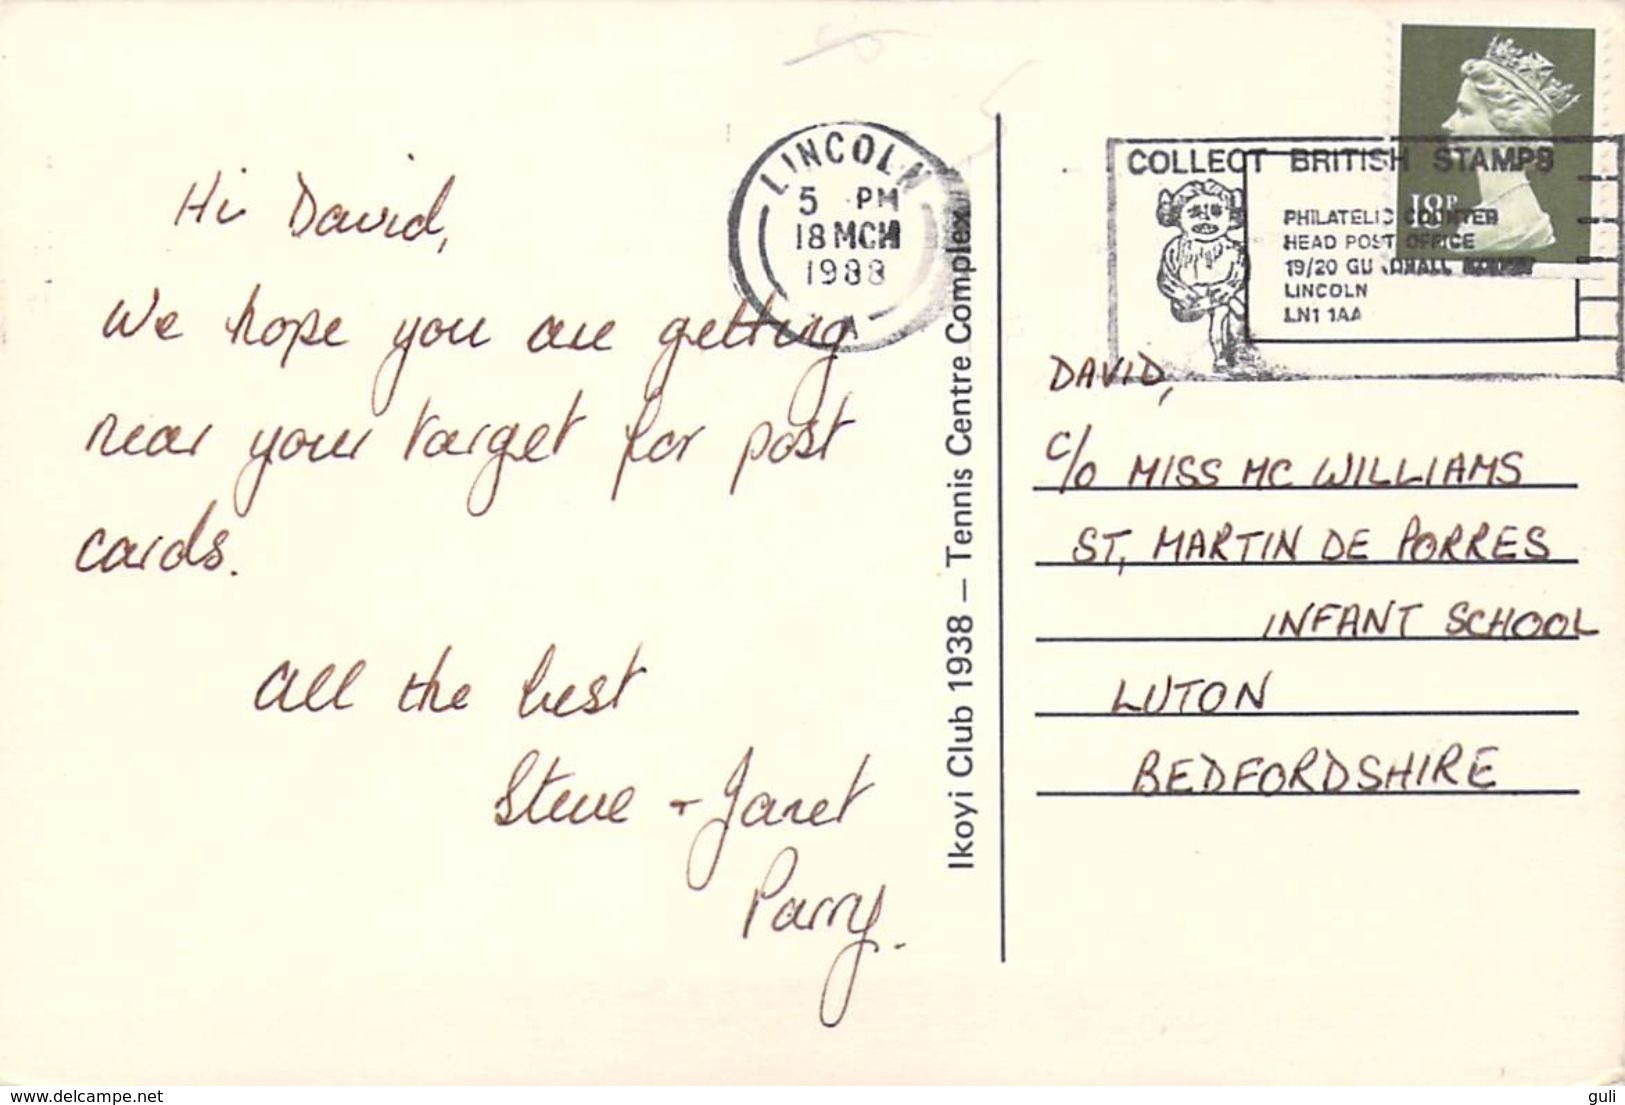 Hi David,
We hope you are getting
near your target for post
cards.
All the best
Steve + Janet
Parry.
LINCOLN
5 PM
18 MCH
1988
A
Ikoyi Club 1938 – Tennis Centre Complex
COLLECT BRITISH STAMPS
PHILATELIC COUNTER
HEAD POST OFFICE
19/20 GUILDHALL
LINCOLN
LN1 1AA
18P
DAVID,
C/O MISS MC WILLIAMS
ST, MARTIN DE PORRES
INFANT SCHOOL
LUTON
BEDFORDSHIRE
www.delcampe.net
guli